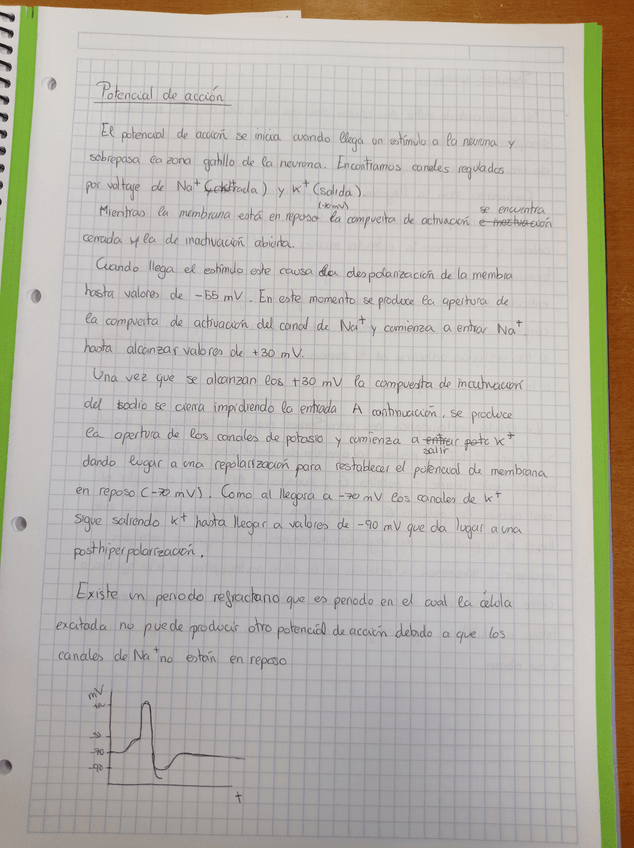 Potencial de acción
El potencial de acción se inicia cuando llega un estímulo a la neurona y
sobrepasa la zona gatillo de la neurona. Encontramos canales regulados
por voltaje de Na⁺ (entrada) y K⁺ (salida).
(-70mV) se encuentra
Mientras la membrana está en reposo la compuerta de activación e inactivación
cerrada y la de inactivación abierta.
Cuando llega el estímulo este causa la despolarización de la membra
hasta valores de -55 mV. En este momento se produce la apertura de
la compuerta de activación del canal de Na⁺ y comienza a entrar Na⁺
hasta alcanzar valores de +30 mV.
Una vez que se alcanzan los +30 mV la compuerta de inactivación
del sodio se cierra impidiendo la entrada. A continuación, se produce
la apertura de los canales de potasio y comienza a entrar K⁺
salir
dando lugar a una repolarización para restablecer el potencial de membrana
en reposo (-70 mV). Como al llegara a -70 mV los canales de K⁺
sigue saliendo K⁺ hasta llegar a valores de -90 mV que da lugar a una
posthiperpolarización.
Existe un periodo refractario que es periodo en el cual la célula
excitada no puede producir otro potencial de acción debido a que los
canales de Na⁺ no están en reposo
mV
-70
-90
t